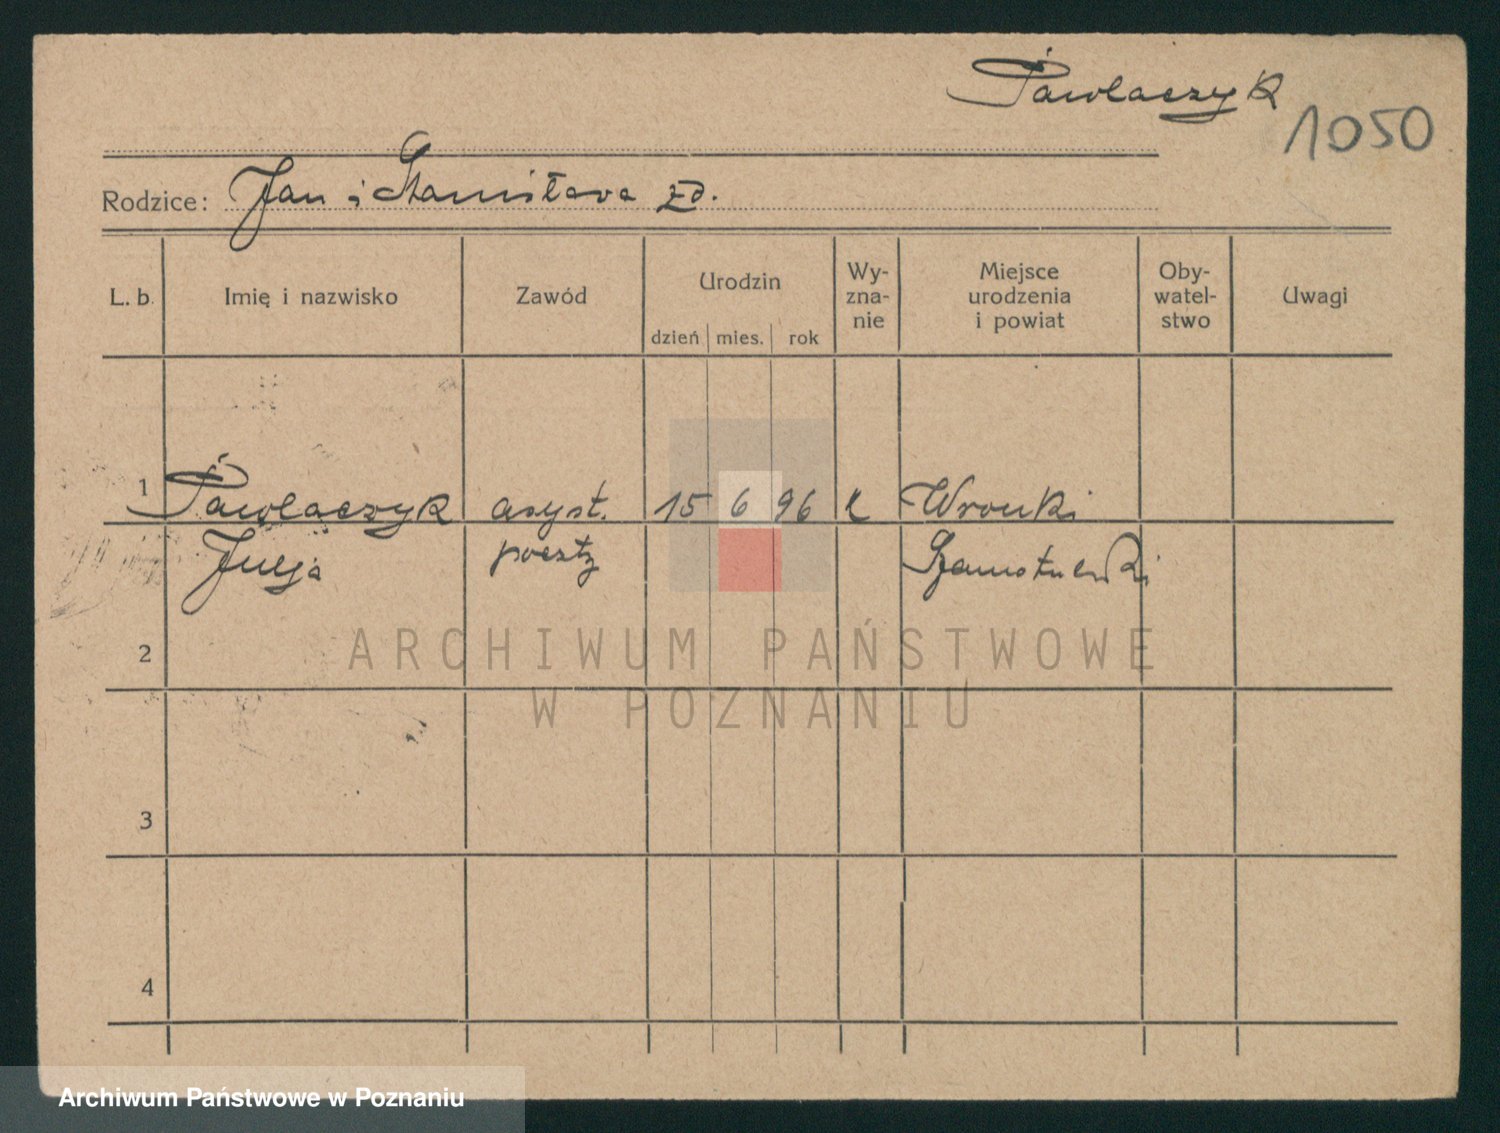 Pawlaczyk
1050
Rodzice: Jan i Stanisława zd.
L. b. Imię i nazwisko Zawód Urodzin dzień mies. rok Wy-zna-nie Miejsce urodzenia i powiat Oby-watel-stwo Uwagi
1 Pawlaczyk asyst. 15 6 96 k Wronki
Julja poczty Szamotulski
2
ARCHIWUM PAŃSTWOWE
W POZNANIU
3
4
Archiwum Państwowe w Poznaniu